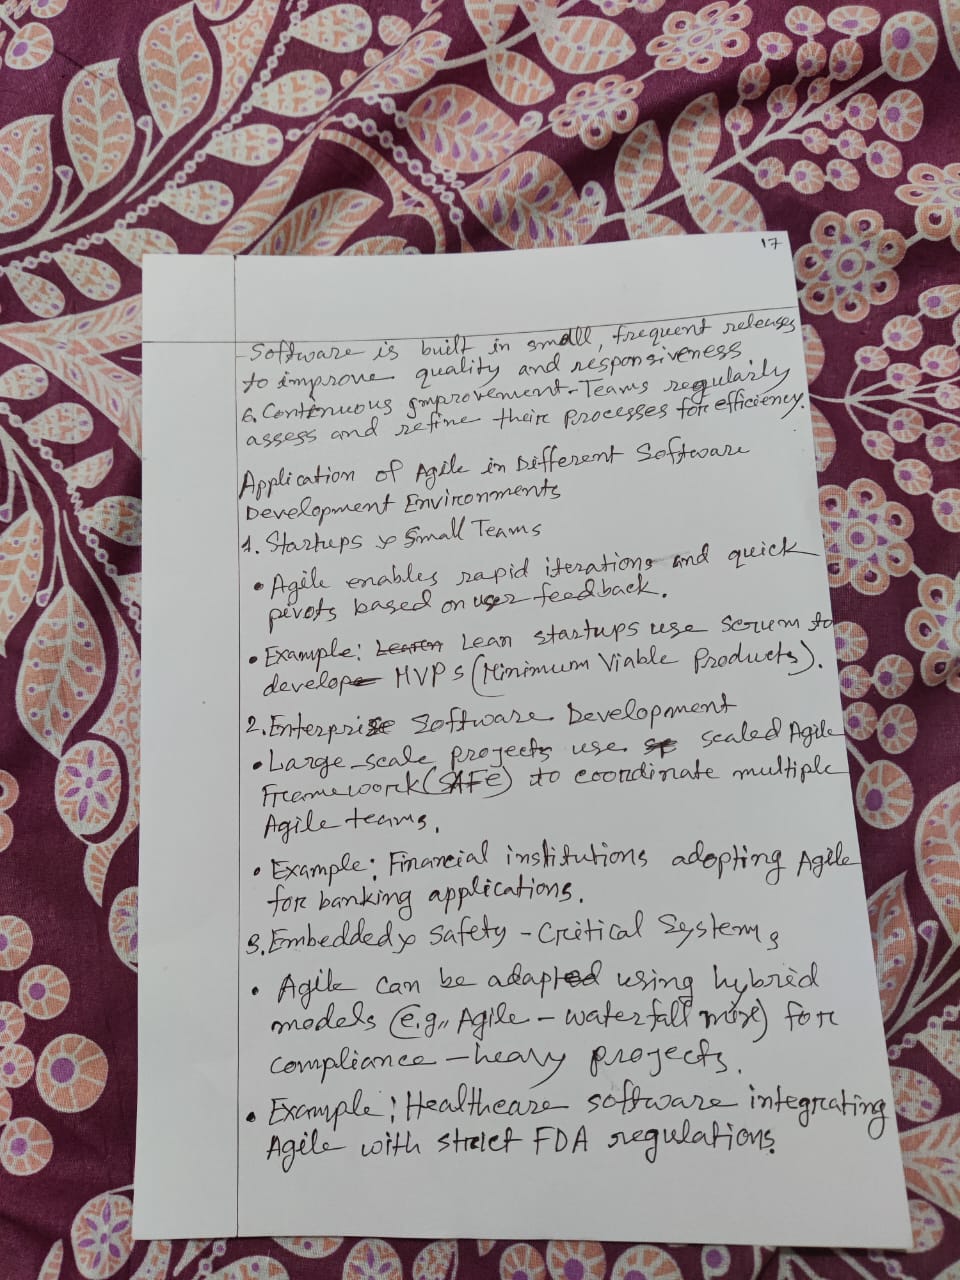 17
Software is built in small, frequent releases
to improve quality and responsiveness.
6. Continuous Improvement - Teams regularly
assess and refine their processes for efficiency.
Application of Agile in Different Software
Development Environments
1. Startups & Small Teams
• Agile enables rapid iterations and quick
pivots based on user feedback.
• Example: Lean startups use Scrum to
develop MVPs (Minimum Viable Products).
2. Enterprise Software Development
• Large-scale projects use scaled Agile
Framework (SAFe) to coordinate multiple
Agile teams.
• Example: Financial institutions adopting Agile
for banking applications.
3. Embedded & Safety-Critical Systems
• Agile can be adapted using hybrid
models (e.g., Agile-waterfall mix) for
compliance-heavy projects.
• Example: Healthcare software integrating
Agile with strict FDA regulations.